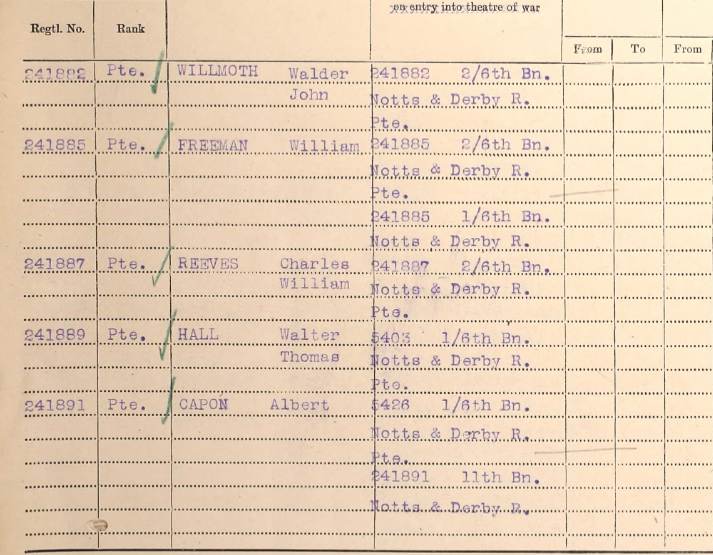 on entry into theatre of war
Regtl. No. Rank
From To From
241882 Pte. WILLMOTH Walder 241882 2/6th Bn.
John Notts & Derby R.
Pte.
241885 Pte. FREEMAN William 241885 2/6th Bn.
Notts & Derby R.
Pte.
241885 1/6th Bn.
Notts & Derby R.
241887 Pte. REEVES Charles 241887 2/6th Bn.
William Notts & Derby R.
Pte.
241889 Pte. HALL Walter 5403 1/6th Bn.
Thomas Notts & Derby R.
Pte.
241891 Pte. CAPON Albert 5426 1/6th Bn.
Notts & Derby R.
Pte.
241891 11th Bn.
Notts & Derby R.